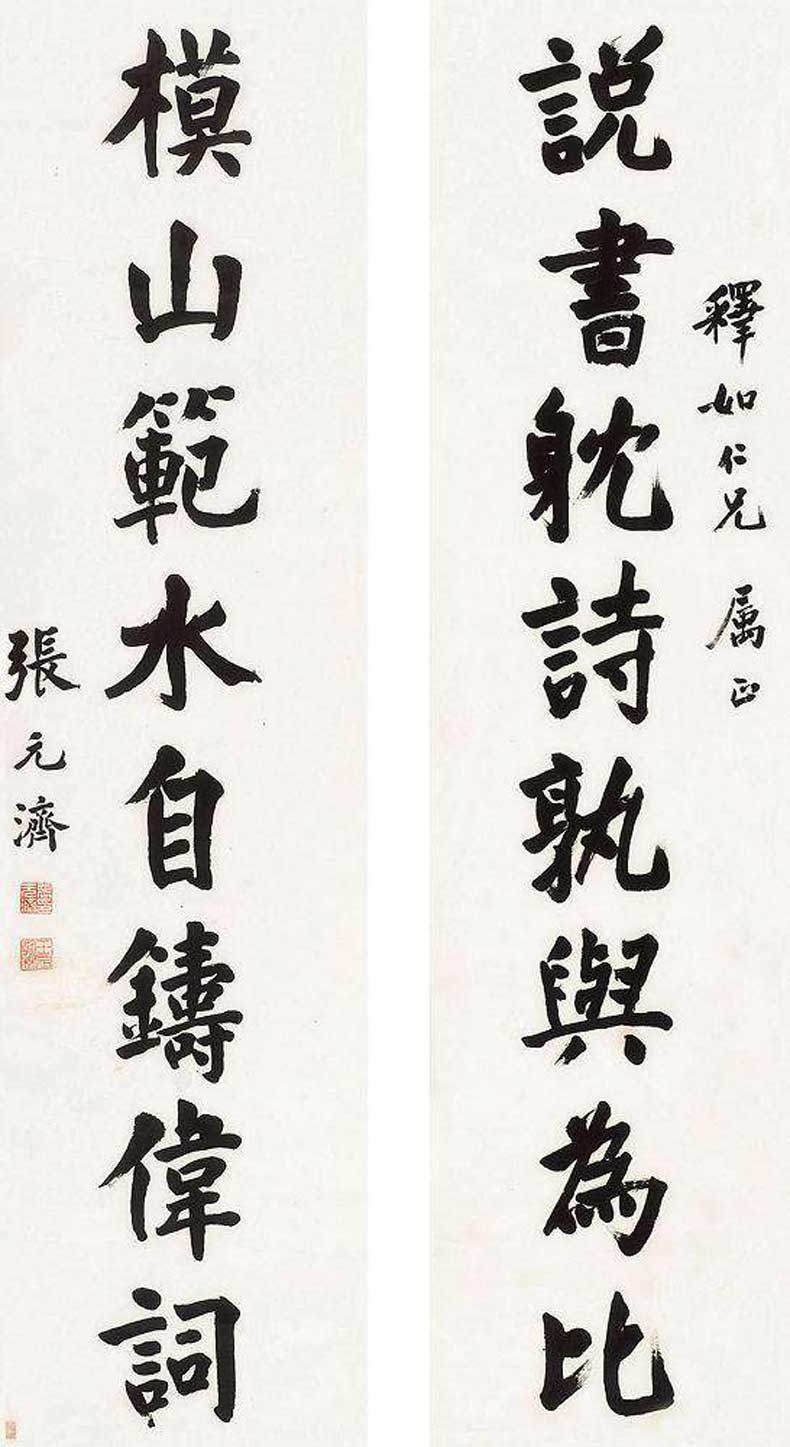 釋如仁兄 属正
説書躭詩孰與為比
模山範水自鑄偉詞
張元濟